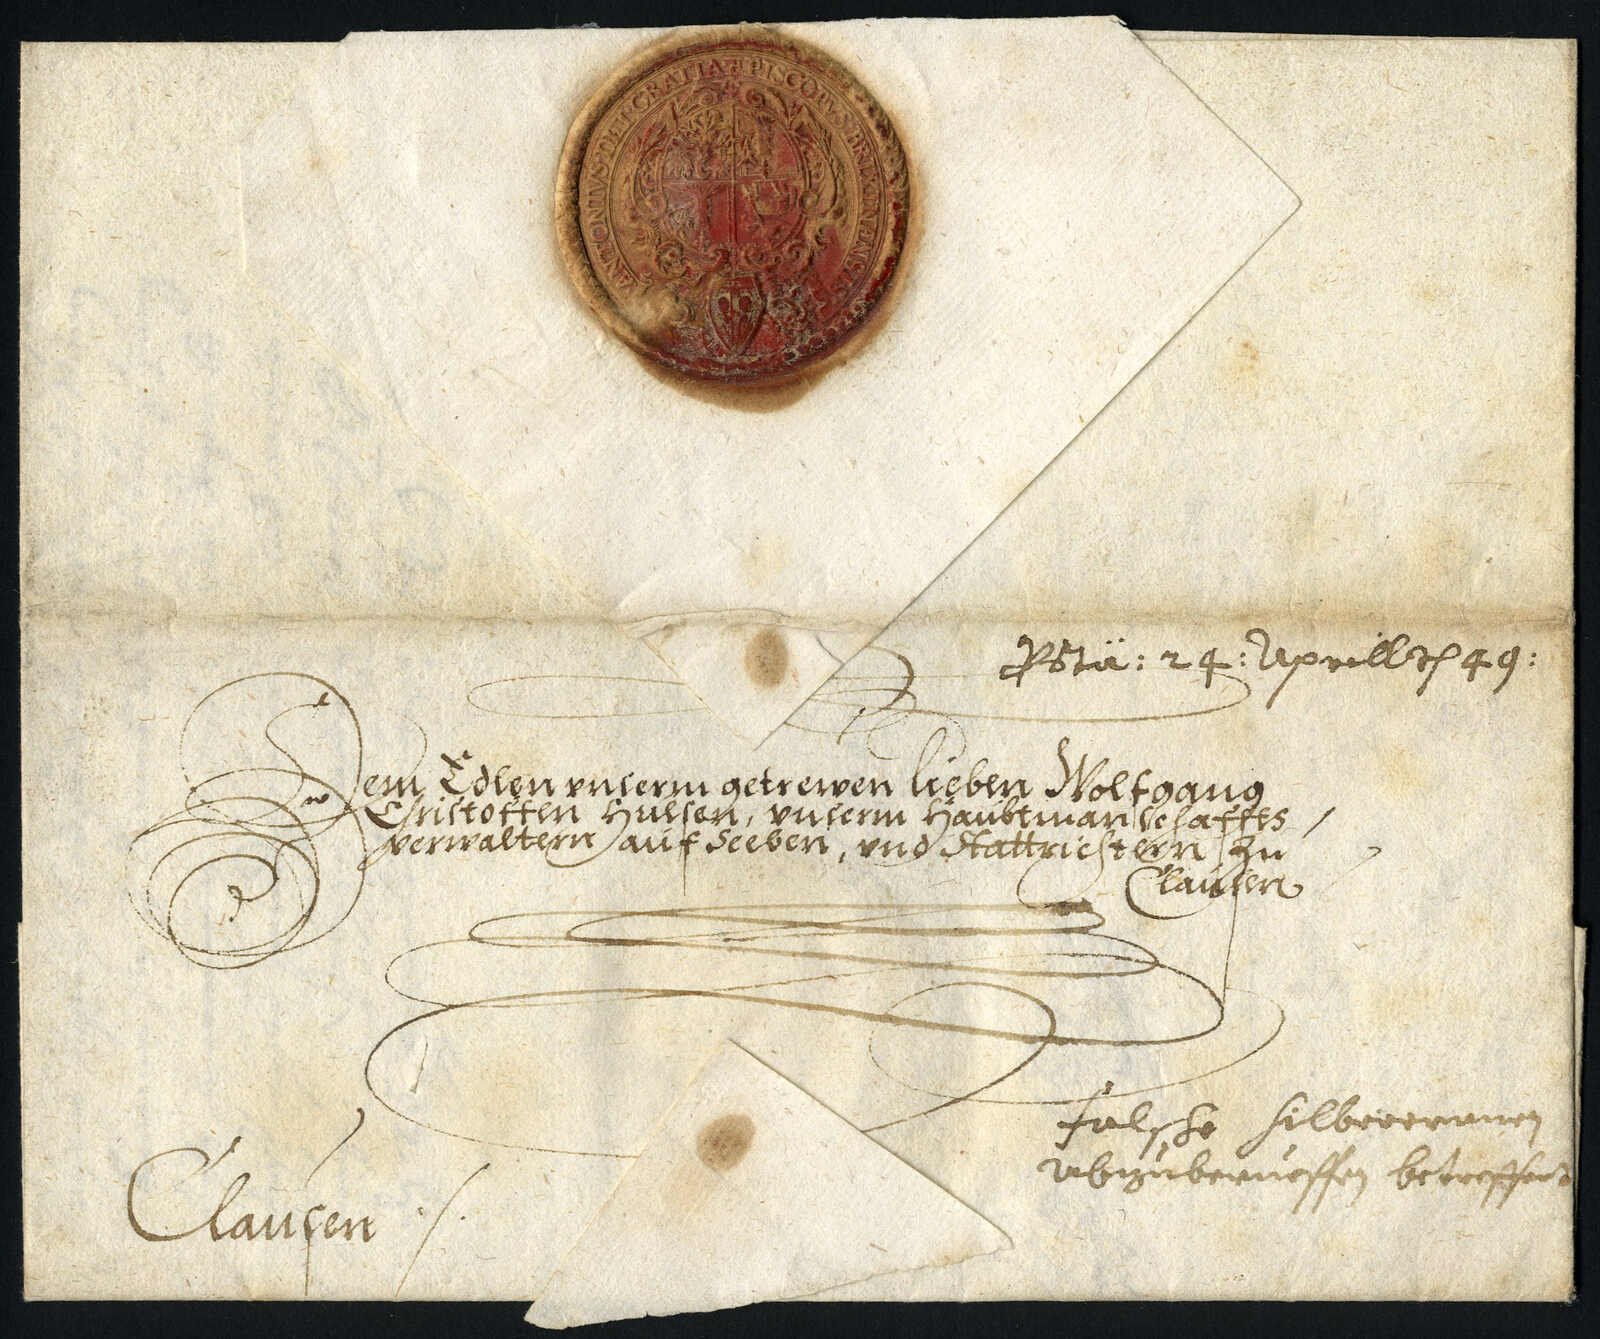 ANTONIVS DEI GRATIA EPISCOPVS BRIXINENSIS
Pstä: 24: Aprill 49:
Dem Edlen vnserm getrewen lieben Wolfgang
Cristoffen Hulsen, vnserm Haubtmanschaffts
verwaltern auf Seeben, vnd Stattrichtern zu
Clausen
falsche
abzuberueffen betreffend
Clausen ./.